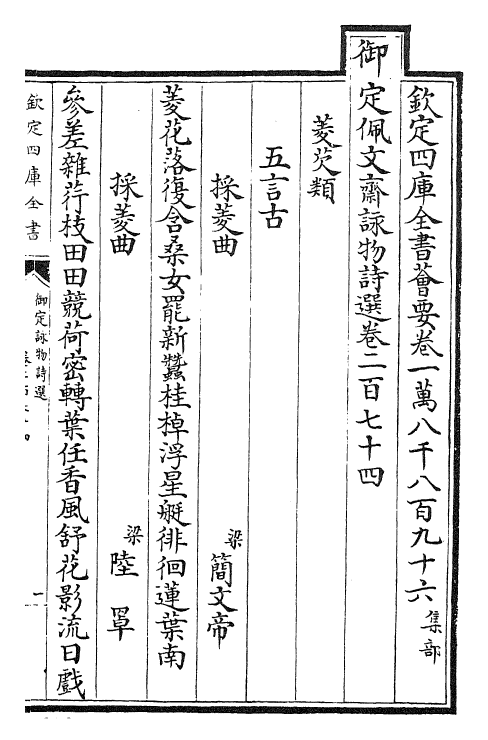 欽定四庫全書薈要卷一萬八千八百九十六 集部
御定佩文齋詠物詩選卷二百七十四
菱芡類
五言古
採菱曲 梁 簡文帝
菱花落復含桑女罷新蠶桂棹浮星艇徘徊蓮葉南
採菱曲 梁 陸罩
參差雜荇枝田田競荷密轉葉任香風舒花影流日戲
欽定四庫全書
御定詠物詩選
一